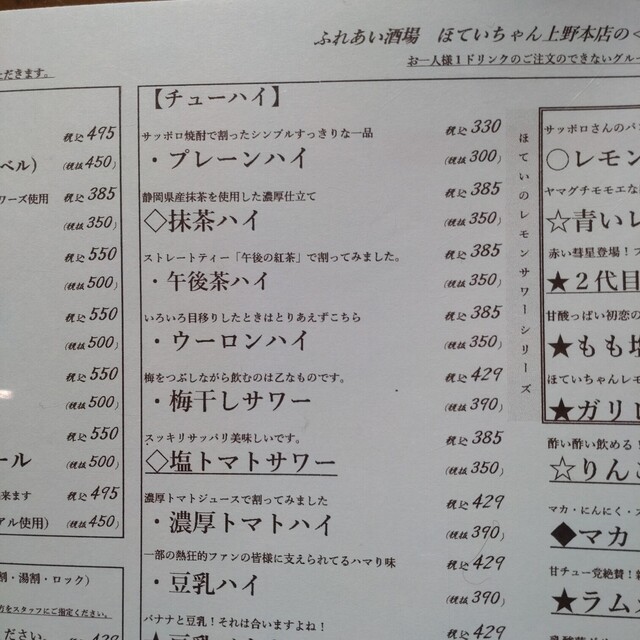 ふれあい酒場　ほていちゃん上野本店の
お一人様1ドリンクのご注文のできないグルー
ただきます。
税込 495
ベル）　(税抜 450)
ワーズ使用　税込 385
(税抜 350)
税込 550
(税抜 500)
税込 550
(税抜 500)
税込 550
(税抜 500)
税込 550
ール　(税抜 500)
来ます　税込 495
アル使用）　(税抜 450)
割・湯割・ロック）
をスタッフにご指定ください。
税込 429
【チューハイ】
サッポロ焼酎で割ったシンプルすっきりな一品　税込 330
・プレーンハイ　(税抜 300)
静岡県産抹茶を使用した濃厚仕立て　税込 385
◇抹茶ハイ　(税抜 350)
ストレートティー「午後の紅茶」で割ってみました。　税込 385
・午後茶ハイ　(税抜 350)
いろいろ目移りしたときはとりあえずこちら　税込 385
・ウーロンハイ　(税抜 350)
梅をつぶしながら飲むのは乙なものです。　税込 429
・梅干しサワー　(税抜 390)
スッキリサッパリ美味しいです。　税込 385
◇塩トマトサワー　(税抜 350)
濃厚トマトジュースで割ってみました　税込 429
・濃厚トマトハイ　(税抜 390)
一部の熱狂的ファンの皆様に支えられてるハマり味　税込 429
・豆乳ハイ　(税抜 390)
バナナと豆乳！それは合いますよね！　税込 429
ほていのレモンサワーシリーズ
サッポロさんのバ
○レモン
ヤマグチモモエな
☆青いレ
赤い彗星登場！
★２代目
甘酸っぱい初恋の
★もも塩
ほていちゃんレモ
★ガリ
酢い酢い飲める！
☆りんご
マカ・にんにく・ス
◆マカ
甘チュー党絶賛！
★ラム